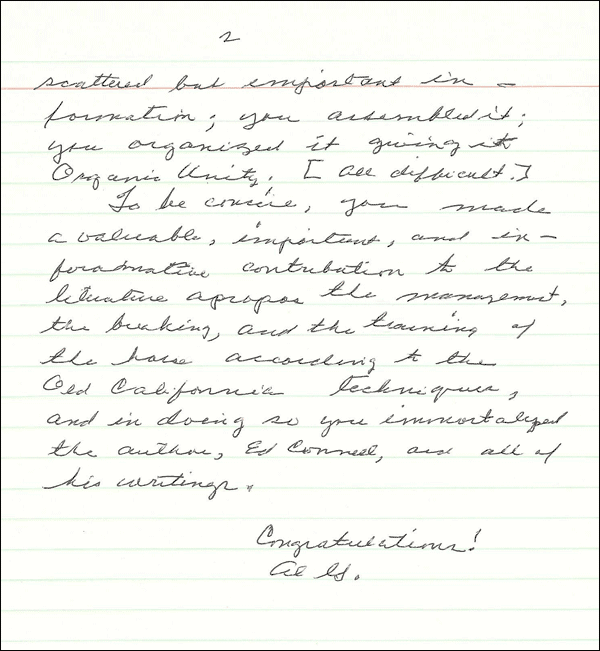 2
scattered but important in –
formation; you assembled it;
you organized it giving it
Organic Unity. [All difficult.]
To be concise, you made
a valuable, important, and in –
formative contribution to the
literature apropos the management,
the breaking, and the training of
the horse according to the
Old California Techniques,
and in doing so you immortalized
the author, Ed Connell, and all of
his writings.
Congratulations!
Al